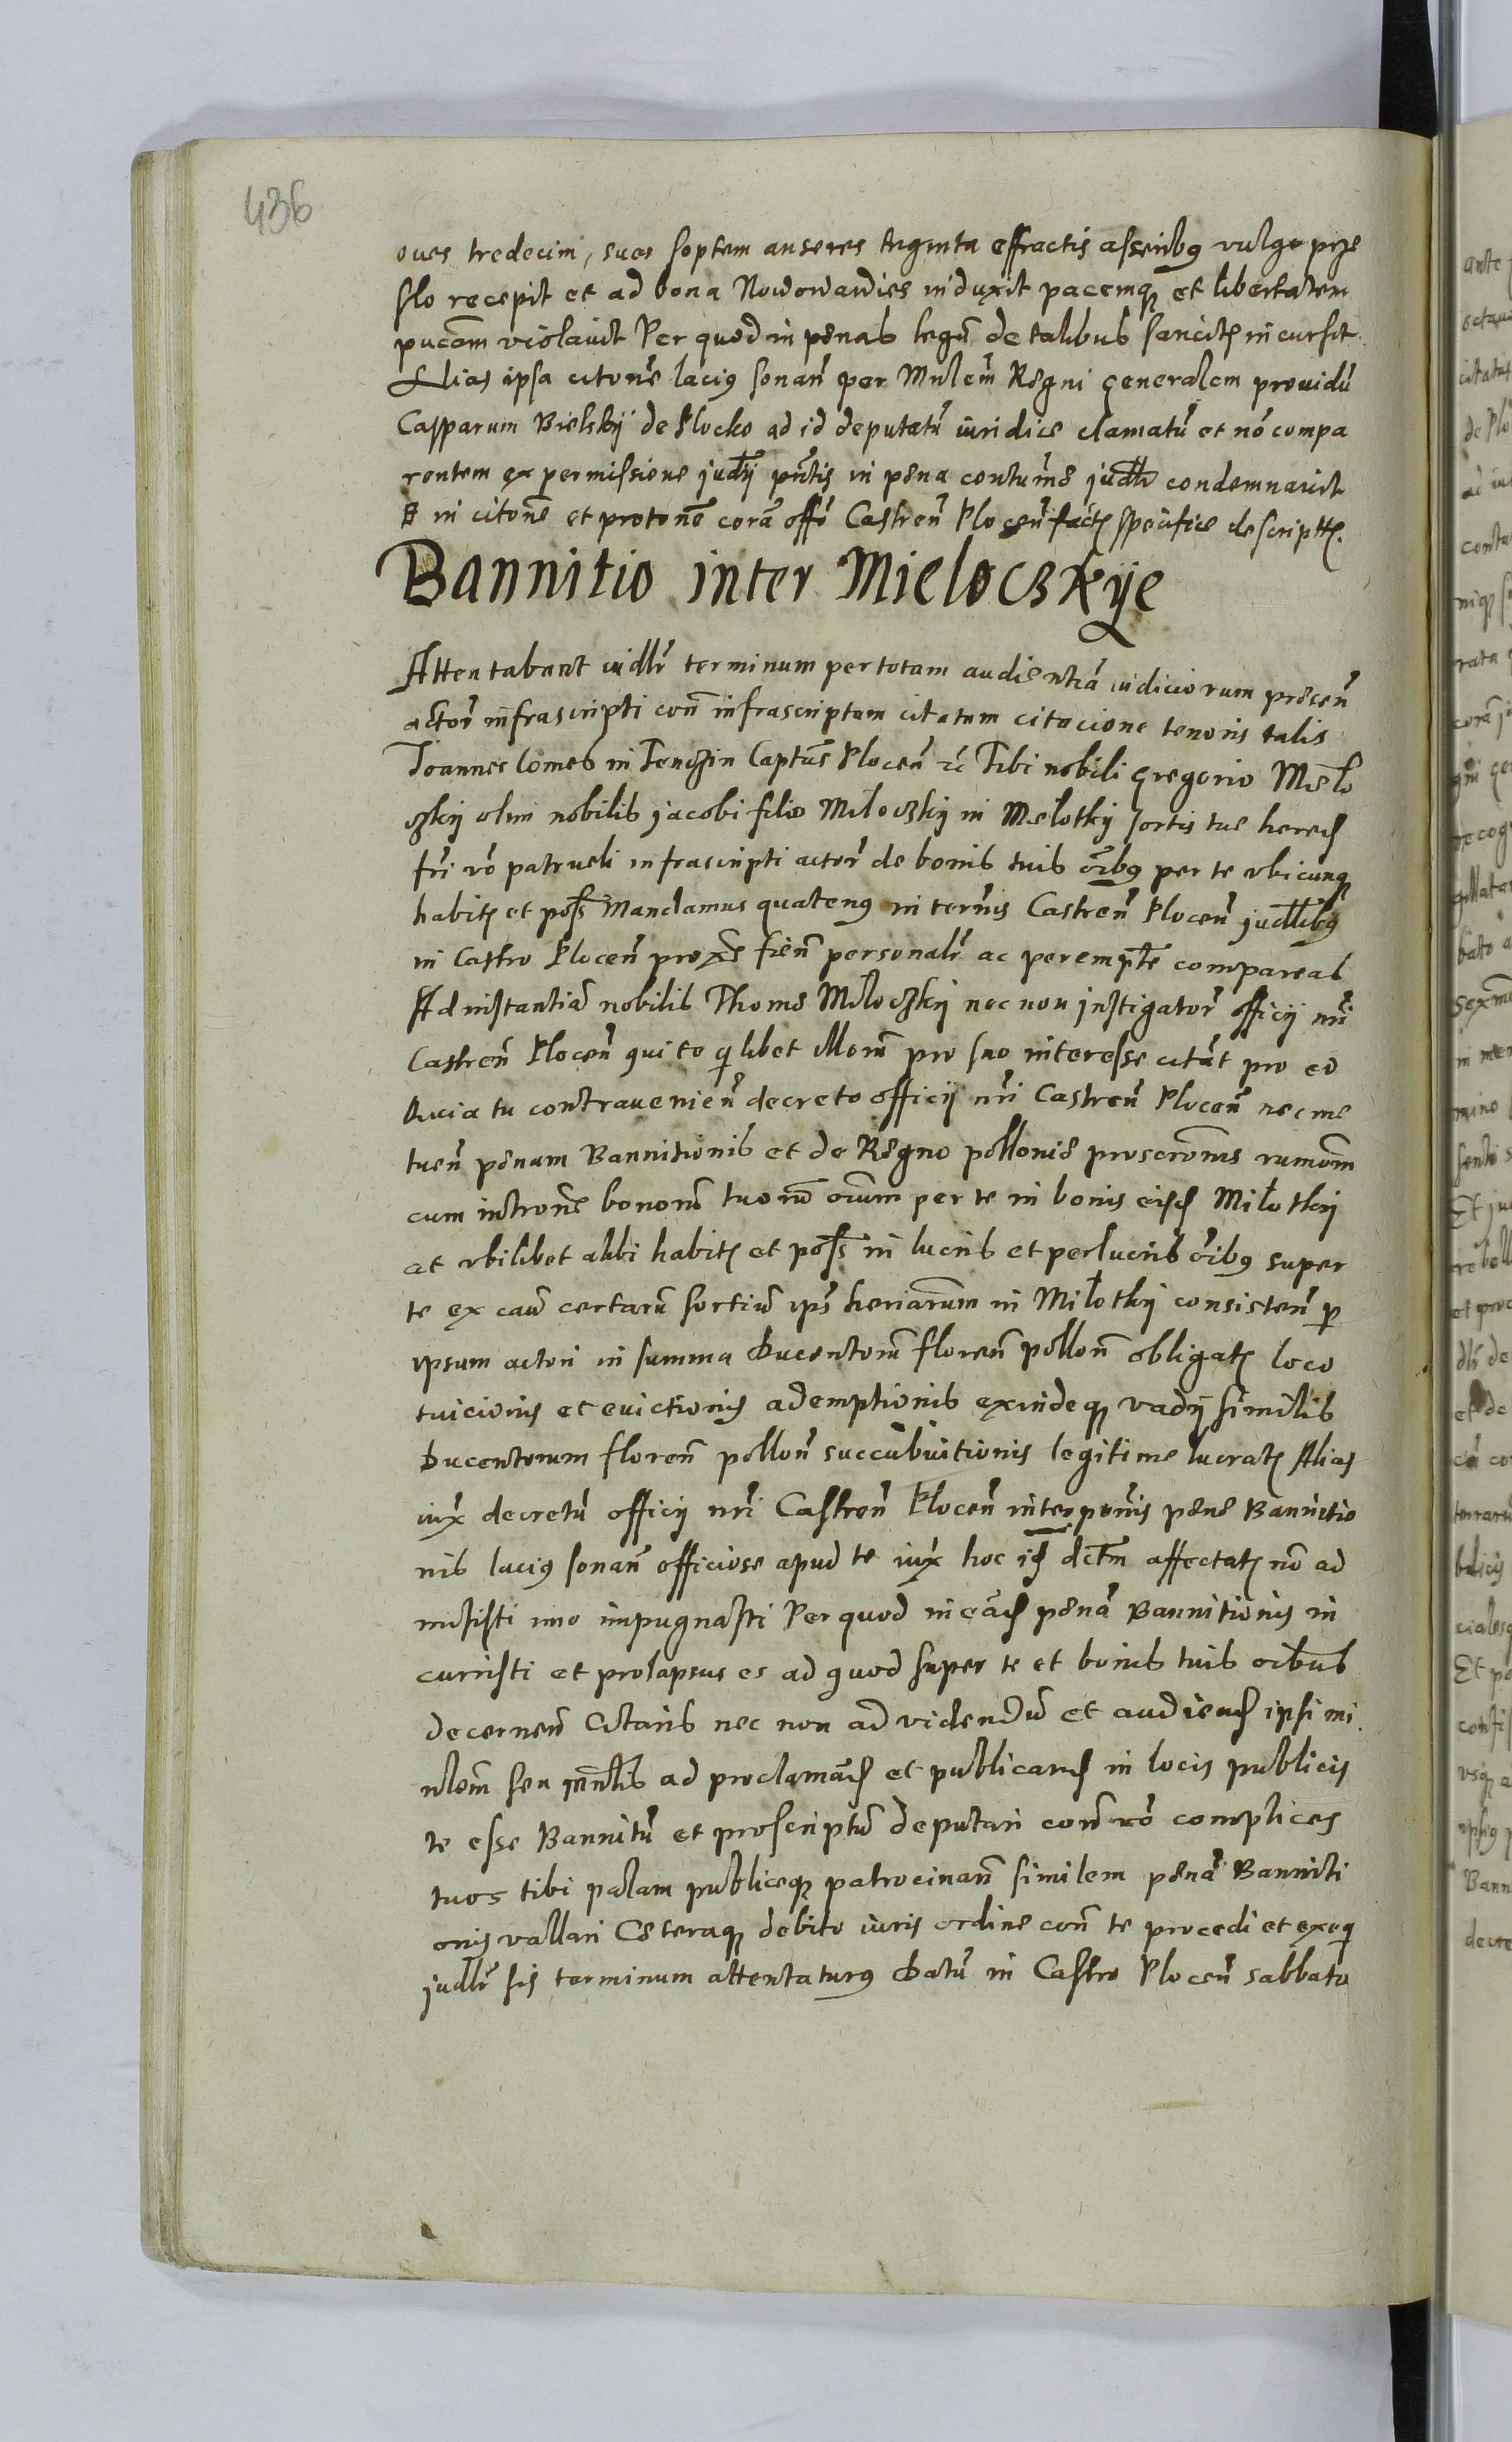 436
oues tredecim, sues septem anseres triginta effractis asseribg vulgo prze
slo recepit et ad bona Nowowawies induxit pacemq et libertatem
pucam violavit Per quod in penas legu de talibus sancitz incursit
Alias ipsa citone lacig sonan per Mnlem Regni generalem prouidu
Casparum Bielskij de Plocko ad id deputatu iuridice clamatu et no compa
rentem ex permissione judij pntis in pena contume judlr condemnauit
in citone et protone cora offo Castren Plocen factz specifice descriptz.
Bannitio inter Mieloczkije
Attentabant iudlr terminum per totam audientia iudiciorum presen
actor infrascripti con infrascriptum citatum citacione tenoris talis
Joannes Comes in Tenczin Captus Plocen zc Tibi nobili Gregorio Milo
czkij olim nobilis jacobi filio Miloczkij in Melotkij sortis tue hered
fri vo patrueli infrascripti actor de bonis tuis oibg per te vbicunq
habitz et poss Mandamus quateng in ternis Castren Plocen judlibg
in Castro Plocen prox fien personalr ac perempte compareas
Ad instantia nobilis Thome Miloczkij nec non instigator officij nri
Castren Plocen qui te qlibet illorum pro suo interesse citat pro eo
Quia tu contravenien decreto officij nri Castren Plocen nec me
tuen penam Bannitionis et de Regno pollonie proscronis
cum introne bonoru tuoru oium per te in bonis eisd Milotkij
et vbilibet alibi habitz et poss in lucris et perlucris oibg super
te ex cau certaru sortiu ips heriarum in Milotkij consisten p
ipsum actori in summa Ducentoru floren pollon obligatz loco
tuicionis et euictionis ademptionis exindeq vadij similis
Ducentorum floren pollon succubuitionis legitime lucratz Alias
iux decretu officij nri Castren Plocen interpenis pene Bannitio
nis lacig sonan officiose apud te iux hoc id dctm affectatz no ad
misisti imo impugnasti Per quod in ead pena Bannitionis in
curristi et prolapsus es ad quod super te et bonis tuis oibus
decernen Citaris nec non ad videndu et audiend ipsi mi
nlem seu mnles ad proclamad et publicand in locis publicis
te esse Bannitu et proscriptu deputari con vo complices
tuos tibi palam publiceq patrocinan similem pena Banniti
onis vallari Ceteraq debito iuris ordine con te procedi et exeq
judlr sis terminum attentaturg Datu in Castro Plocen sabbato